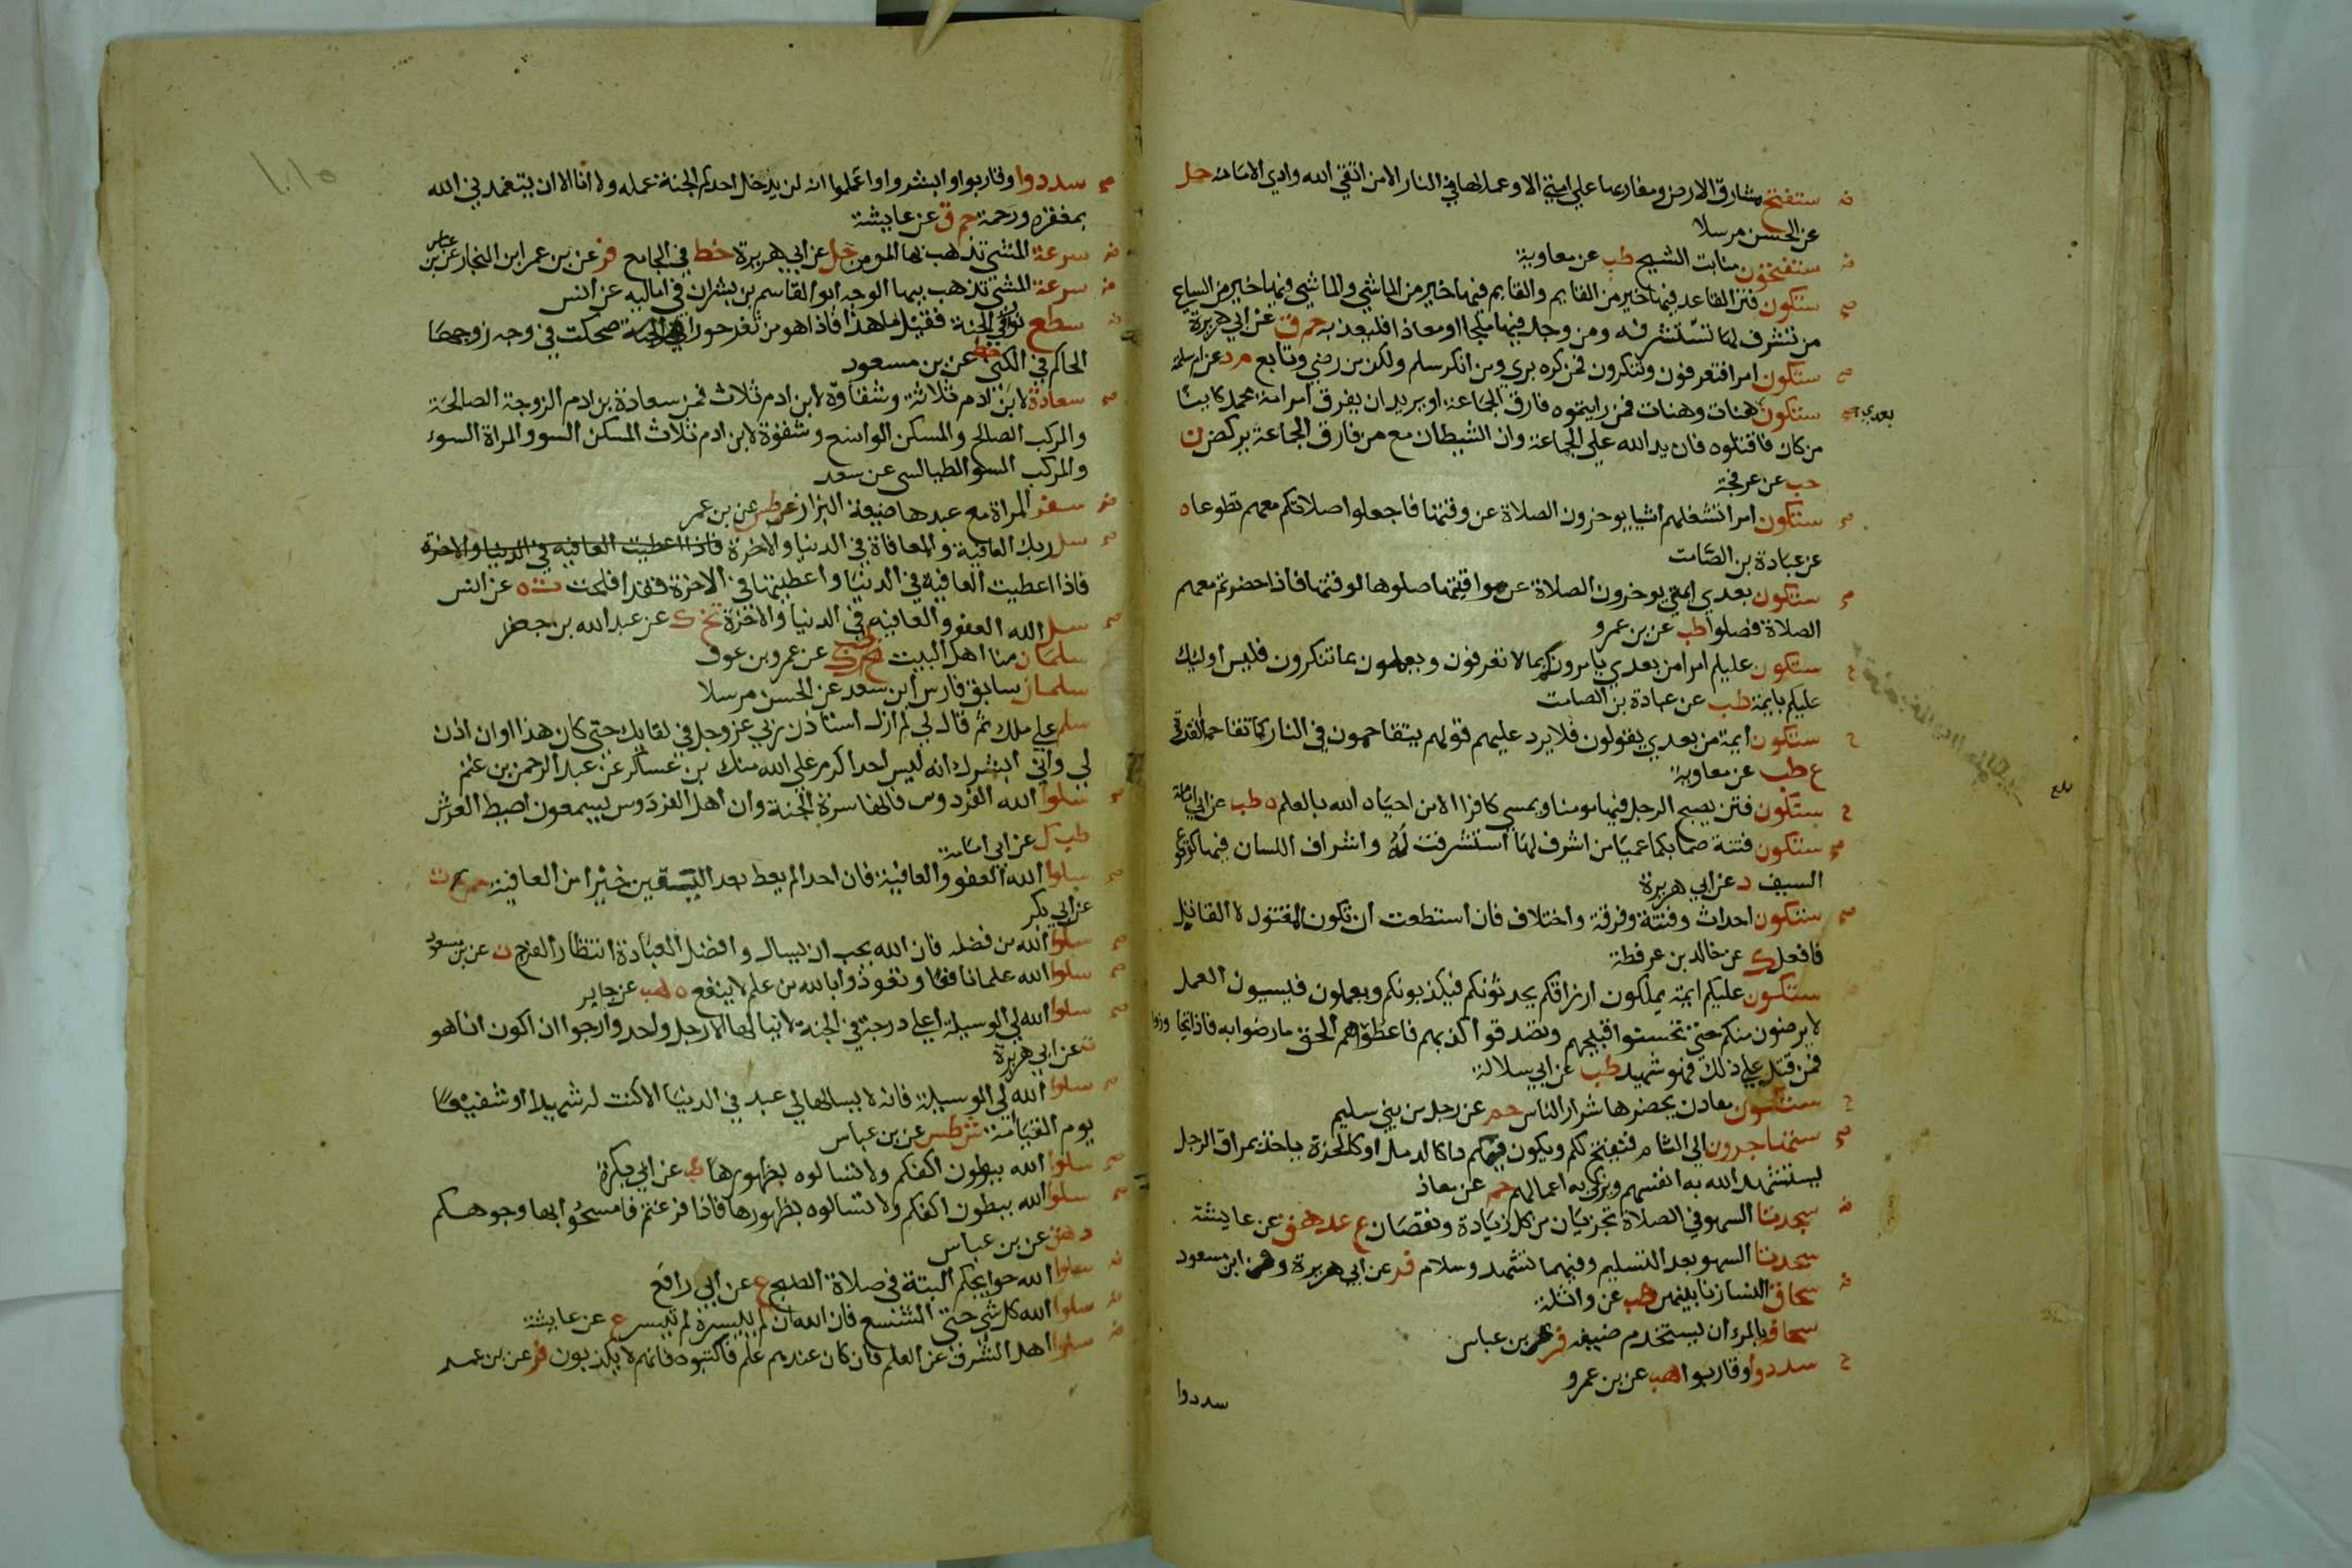 ستفتح مشارق الارض ومغاربها على امتي الا وعمالها في النار الا من اتقى الله وادي الامانه حل
عن الحسن مرسلا
ستفتحون منابت الشيح طب عن معاوية
ستكون فتن القاعد فيها خير من القايم والقايم فيها خير من الماشي والماشي فيها خير من الساعي
من تشرف لها تستشرفه ومن وجد فيها ملجاا ومعاذا فليعذ به حم ق عن ابي هريرة
ستكون امرا فتعرفون وتنكرون فمن كره بري ومن انكر سلم ولكن من رضي وتابع م د عن ام سلمة
ستكون بعدي هنات وهنات فمن رايتموه فارق الجماعة او يريد ان يفرق امر امة محمد كاينا
من كان فاقتلوه فان يد الله على الجماعة وان الشيطان مع من فارق الجماعة يركض ن
حب عن عرفجة
ستكون امرا تشغلهم اشيا يوخرون الصلاة عن وقتها فاجعلوا صلاتكم معهم تطوعا ه
عن عبادة بن الصامت
ستكون بعدي ايمة يوخرون الصلاة عن مواقيتها صلوها لوقتها فاذا حضرتم معهم
الصلاة فصلوا طب عن بن عمرو
ستكون عليكم امرا من بعدي يامرونكم بما لا تعرفون ويعملون بما تنكرون فليس اوليك
عليكم بايمة طب عن عبادة بن الصامت
ستكون ايمة من بعدي يقولون فلا يرد عليهم قولهم يتقاحمون في النار كما تقاحم القردة
ع طب عن معاوية
ستكون فتن يصبح الرجل فيها مومنا ويمسي كافرا الا من احياه الله بالعلم ه طب عن ابي امامة
ستكون فتنة صما بكما عميا من اشرف لها استشرفت له واشراف اللسان فيها كوقوع
السيف د عن ابي هريرة
ستكون احداث وفتنة وفرقة واختلاف فان استطعت ان تكون المقتول لا القاتل
فافعل ك عن خالد بن عرفطة
ستكون عليكم ايمة يملكون ارزاقكم يحدثونكم فيكذبونكم ويعملون فيسيون العمل
لا يرضون منكم حتى تحسنوا قبيحهم وتصدقوا كذبهم فاعطوهم الحق ما رضوا به فاذا تجاوزوا
فمن قتل على ذلك فهو شهيد طب عن ابي سلالة
ستكون معادن يحضرها شرار الناس حم عن رجل من بني سليم
ستهاجرون الى الشام فتفتح لكم ويكون فيكم داكالدمل او كالحزة ياخذ بمراق الرجل
يستشهد الله به انفسهم ويزكي به اعمالهم حم عن معاذ
سجدتا السهو في الصلاة تجزيان من كل زيادة ونقصان ع عد هق عن عايشة
سجدتا السهو بعد التسليم وفيهما تشهد وسلام فر عن ابي هريرة وعن ابن مسعود
سحاق النسا زنا بينهن هب عن واثلة
سخافة بالمرء ان يستخدم ضيفه فر عن بن عباس
سددوا وقاربوا طب عن بن عمرو
سددوا
سددوا وقاربوا وابشروا واعلموا انه لن يدخل احدكم الجنة عمله ولا انا الا ان يتغمدني الله
بمغفره ورحمة حم ق عن عايشة
سرعة المشي تذهب بها المومن حل عن ابي هريرة خط في الجامع فر عن بن عمر ابن النجار عن بن عباس
سرعة المشي تذهب ببها الوجه ابو القاسم بن بشران في اماليه عن انس
سطع نور في الجنة فقيل ما هذا فاذا هو من ثغر حورا ضحكت في وجه زوجها
الحاكم في الكنى خط عن بن مسعود
سعادة لابن ادم ثلاثة وشقاوة لابن ادم ثلاث فمن سعادة بن ادم الزوجة الصالحة
والمركب الصالح والمسكن الواسع وشقوة لابن ادم ثلاث المسكن السو والمراة السوء
والمركب السو الطيالسي عن سعد
سفر المراة مع عبدها ضيعة البزار طس عن بن عمر
سل ربك العافية والمعافاة في الدنيا والاخرة فاذا اعطيت العافيه في الدنيا والاخرة
فاذا اعطيت العافيه في الدنيا واعطيتها في الاخرة فقد افلحت ت ه عن انس
سل الله العفو والعافيه في الدنيا والاخرة تخ ك عن عبد الله بن جعفر
سلمان منا اهل البيت طب ك عن عمرو بن عوف
سلمان سابق فارس ابن سعد عن الحسن مرسلا
سلم علي ملك ثم قال لي لم ازل استاذن ربي عز وجل في لقايك حتى كان هذا اوان اذن
لي واني ابشرك انه ليس احد اكرم على الله منك بن عساكر عن عبد الرحمن بن غنم
سلوا الله الفردوس فانها سرة الجنة وان اهل الفردوس يسمعون اطيط العرش
طب ك عن ابي امامة
سلوا الله العفو والعافية فان احدا لم يعط بعد اليقين خيرا من العافية حم ت
عن ابي بكر
سلوا الله من فضله فان الله يحب ان يسال وافضل العبادة انتظار الفرج ت عن بن مسعود
سلوا الله علما نافعا وتعوذوا بالله من علم لا ينفع ه هب عن جابر
سلوا الله لي الوسيلة اعلى درجة في الجنة لا ينالها الا رجل واحد وارجوا ان اكون انا هو
ت عن ابي هريرة
سلوا الله لي الوسيلة فانه لا يسالها لي عبد في الدنيا الا كنت له شهيدا او شفيعا
يوم القيامة ش طس عن بن عباس
سلوا الله ببطون اكفكم ولا تسالوه بظهورها طب عن ابي بكرة
سلوا الله ببطون اكفكم ولا تسالوه بظهورها فاذا فرغتم فامسحوا بها وجوهكم
د هق عن بن عباس
سلوا الله حوايجكم البتة في صلاة الصبح ع عن ابي رافع
سلوا الله كل شي حتى الشسع فان الله ان لم ييسره لم يتيسر ع عن عايشة
سلوا اهل الشرف عن العلم فان كان عندهم علم فاكتبوه فانهم لا يكذبون فر عن بن عمر